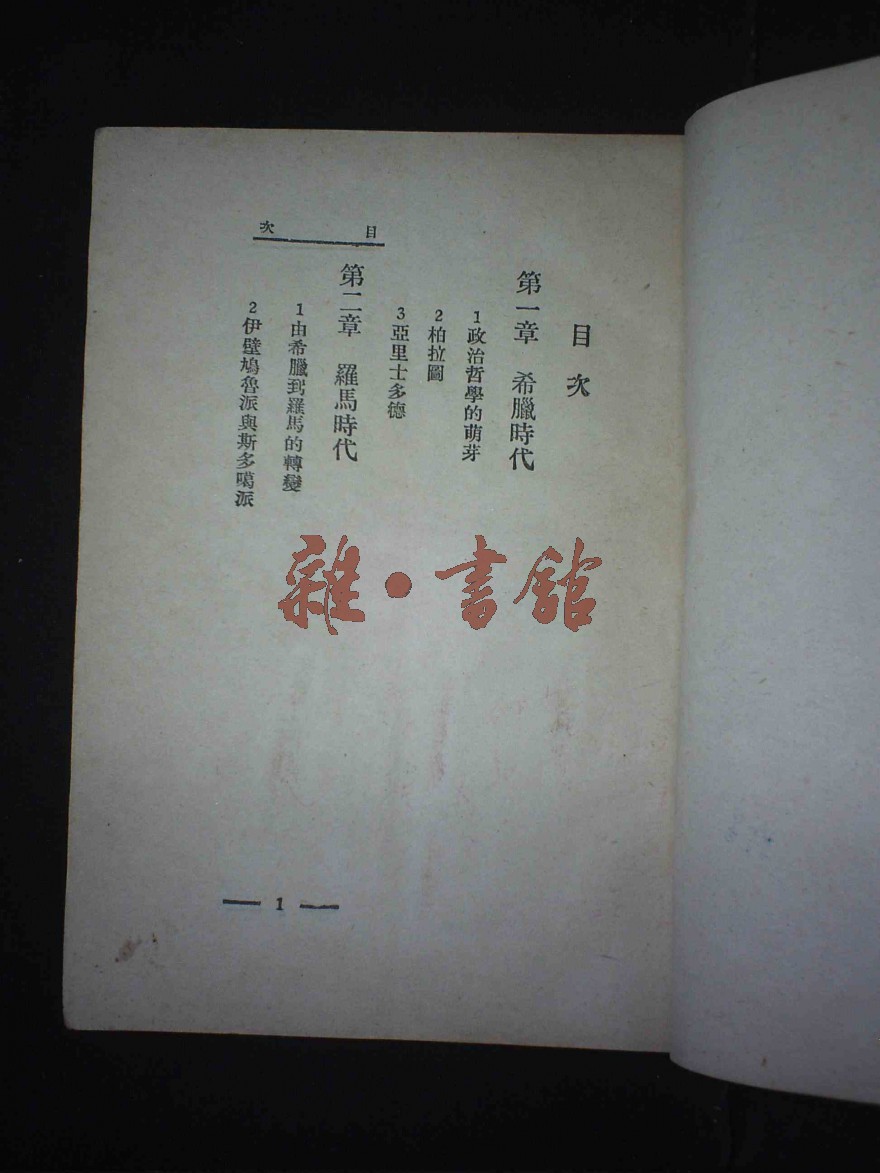 目次
目次
第一章 希臘時代
1政治哲學的萌芽
2柏拉圖
3亞里士多德
第二章 羅馬時代
1由希臘到羅馬的轉變
2伊壁鳩魯派與斯多噶派
雜·書館
— 1 —